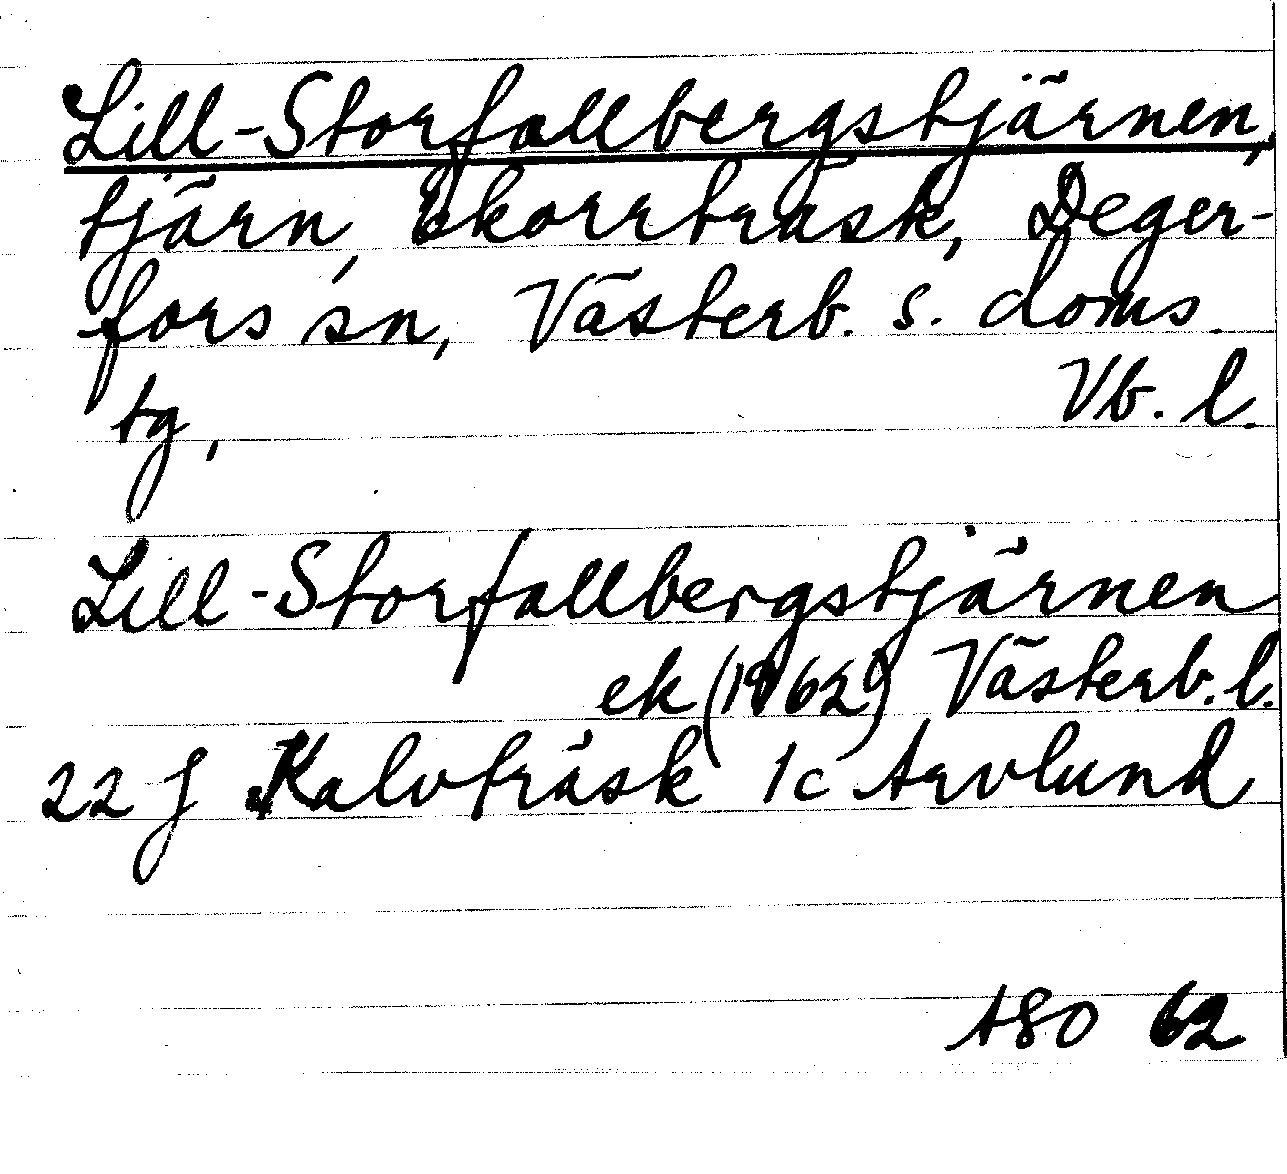 Lill-Storfallbergstjärnen,
tjärn, Ekorrträsk, Deger-
fors sn, Västerb. s. doms.
tg,
Vb. l.
Lill-Storfallbergstjärnen
ek (1962) Västerb. l.
22 J Kalvträsk 1c Arvlund
ASO 62